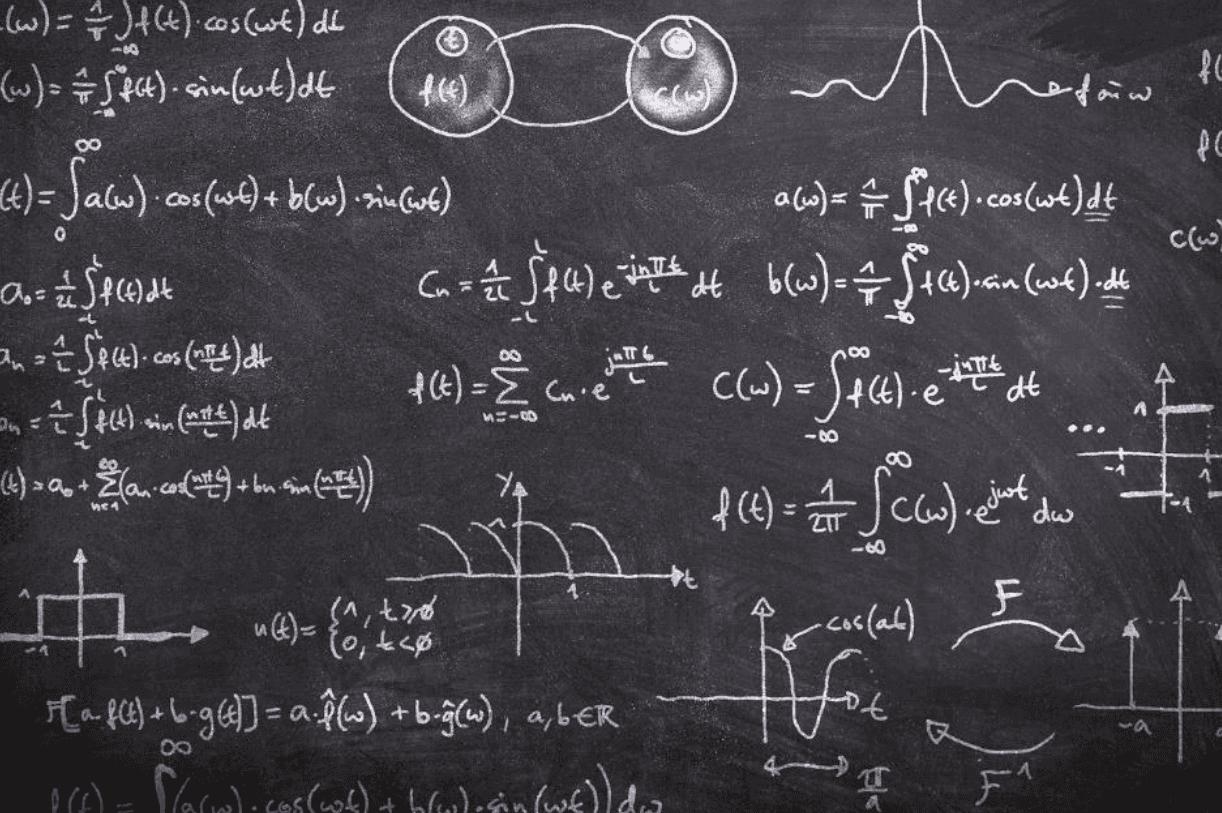 (ω) = 1/π ∫_{-∞} f(t)·cos(ωt) dt
(ω) = 1/π ∫_{-∞}^{∞} f(t)·sin(ωt) dt
t
f(t)
C(ω)
f an ω
f(
f(
(t) = ∫_0^∞ a(ω)·cos(ωt) + b(ω)·sin(ωt)
a(ω) = 1/π ∫_{-∞}^{∞} f(t)·cos(ωt) dt
C(ω)
a₀ = 1/2L ∫_{-L}^{L} f(t) dt
Cn = 1/2L ∫_{-L}^{L} f(t) e^{-jnπt/L} dt
b(ω) = 1/π ∫_{-∞}^{∞} f(t)·sin(ωt)·dt
an = 1/L ∫_{-L}^{L} f(t)·cos(nπt/L) dt
f(t) = ∑_{n=-∞}^{∞} Cn·e^{jnπt/L}
C(ω) = ∫_{-∞}^{∞} f(t)·e^{-jnπt/L} dt
n = 1/L ∫_{-L}^{L} f(t)·sin(nπt/L) dt
...
1
-1
-1
1
(t) = a₀ + ∑_{n=1}^{∞} (an·cos(nπt/L) + bn·sin(nπt/L))
y
1
t
1
f(t) = 1/2π ∫_{-∞}^{∞} C(ω)·e^{jωt} dω
1
-1
1
u(t) = {1, t≥0
{0, t<0
cos(at)
t
π/a
F
F⁻¹
-a
F[a·f(t) + b·g(t)] = a·f̂(ω) + b·ĝ(ω), a,b∈ℝ
f(t) = ∫^∞ (a(ω)·cos(ωt) + b(ω)·sin(ωt)) dω